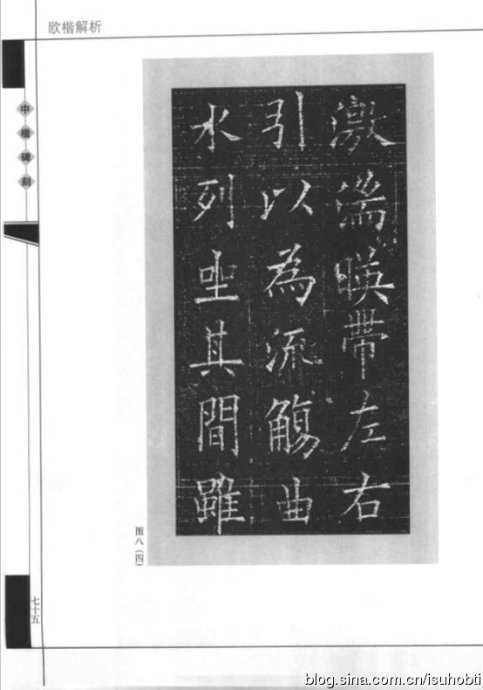 欧楷解析
中楷碑刻
激湍暎帶左右
引以為流觴曲
水列坐其間雖
图八（四）
七十五
blog.sina.com.cn/isuhobti